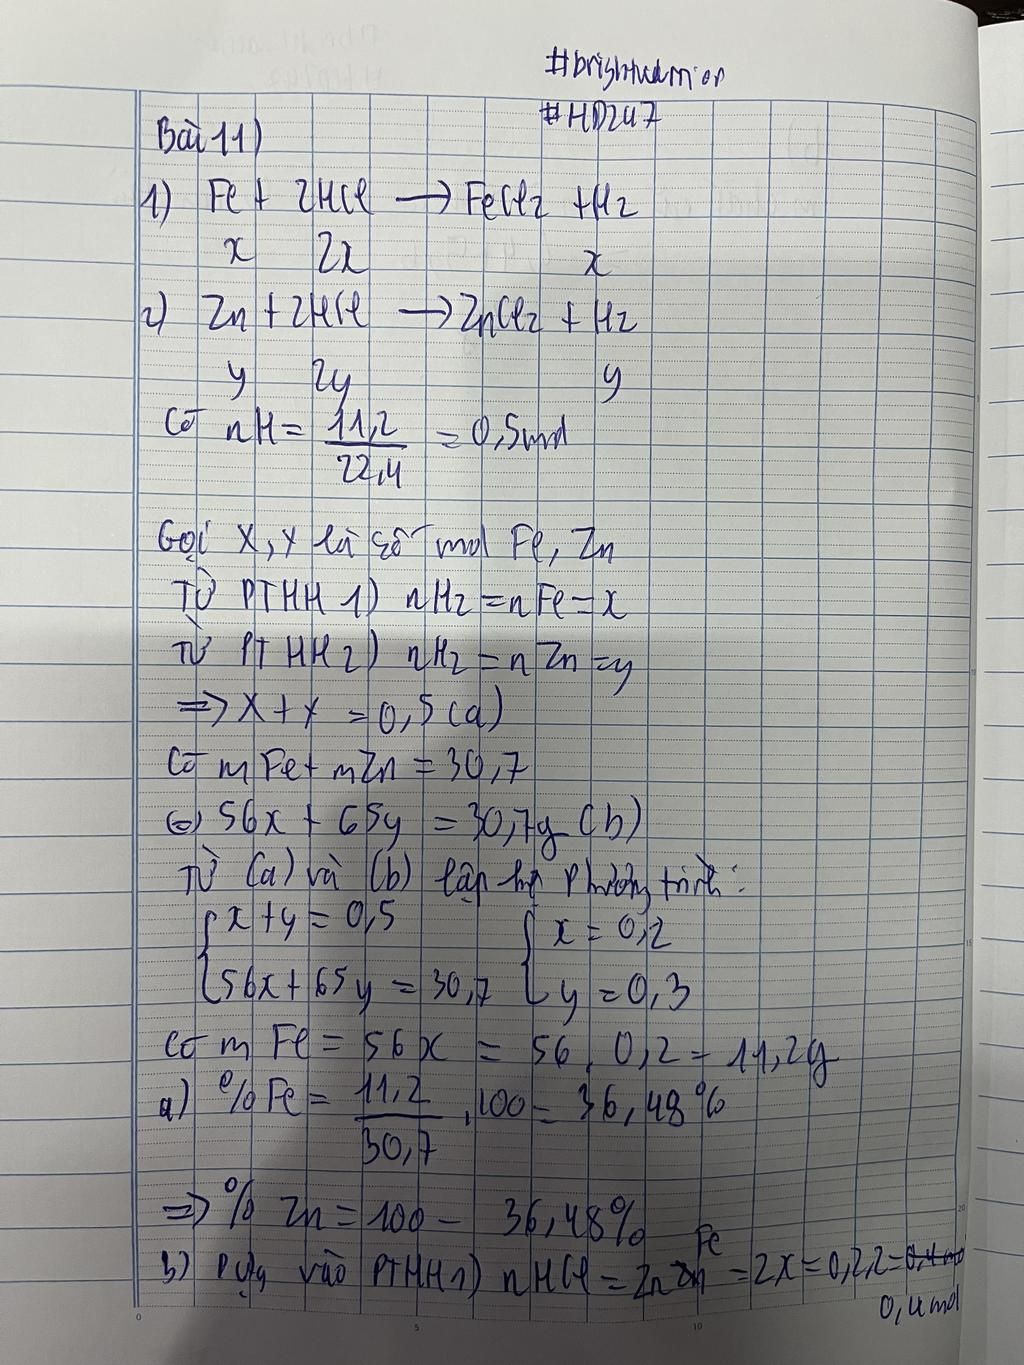 #HD247
Bài 11)
1) Fe + 2HCl → FeCl2 + H2
x 2x x
2) Zn + 2HCl → ZnCl2 + H2
y 2y y
Có nH = 11,2 / 22,4 = 0,5 mol
Gọi x, y là số mol Fe, Zn
Từ PTHH 1) nH2 = nFe = x
Từ PTHH 2) nH2 = nZn = y
=> x + y = 0,5 (a)
Có mFe + mZn = 30,7
(=) 56x + 65y = 30,7g (b)
Từ (a) và (b) lập hệ phương trình:
{ x + y = 0,5 { x = 0,2
56x + 65y = 30,7 y = 0,3
Có mFe = 56x = 56 . 0,2 = 11,2g
a) %Fe = 11,2 / 30,7 . 100 = 36,48%
=> % Zn = 100 - 36,48%
Fe
b) Dựa vào PTHH 1) nHCl = 2n = 2x = 0,2.2 =
0,4 mol